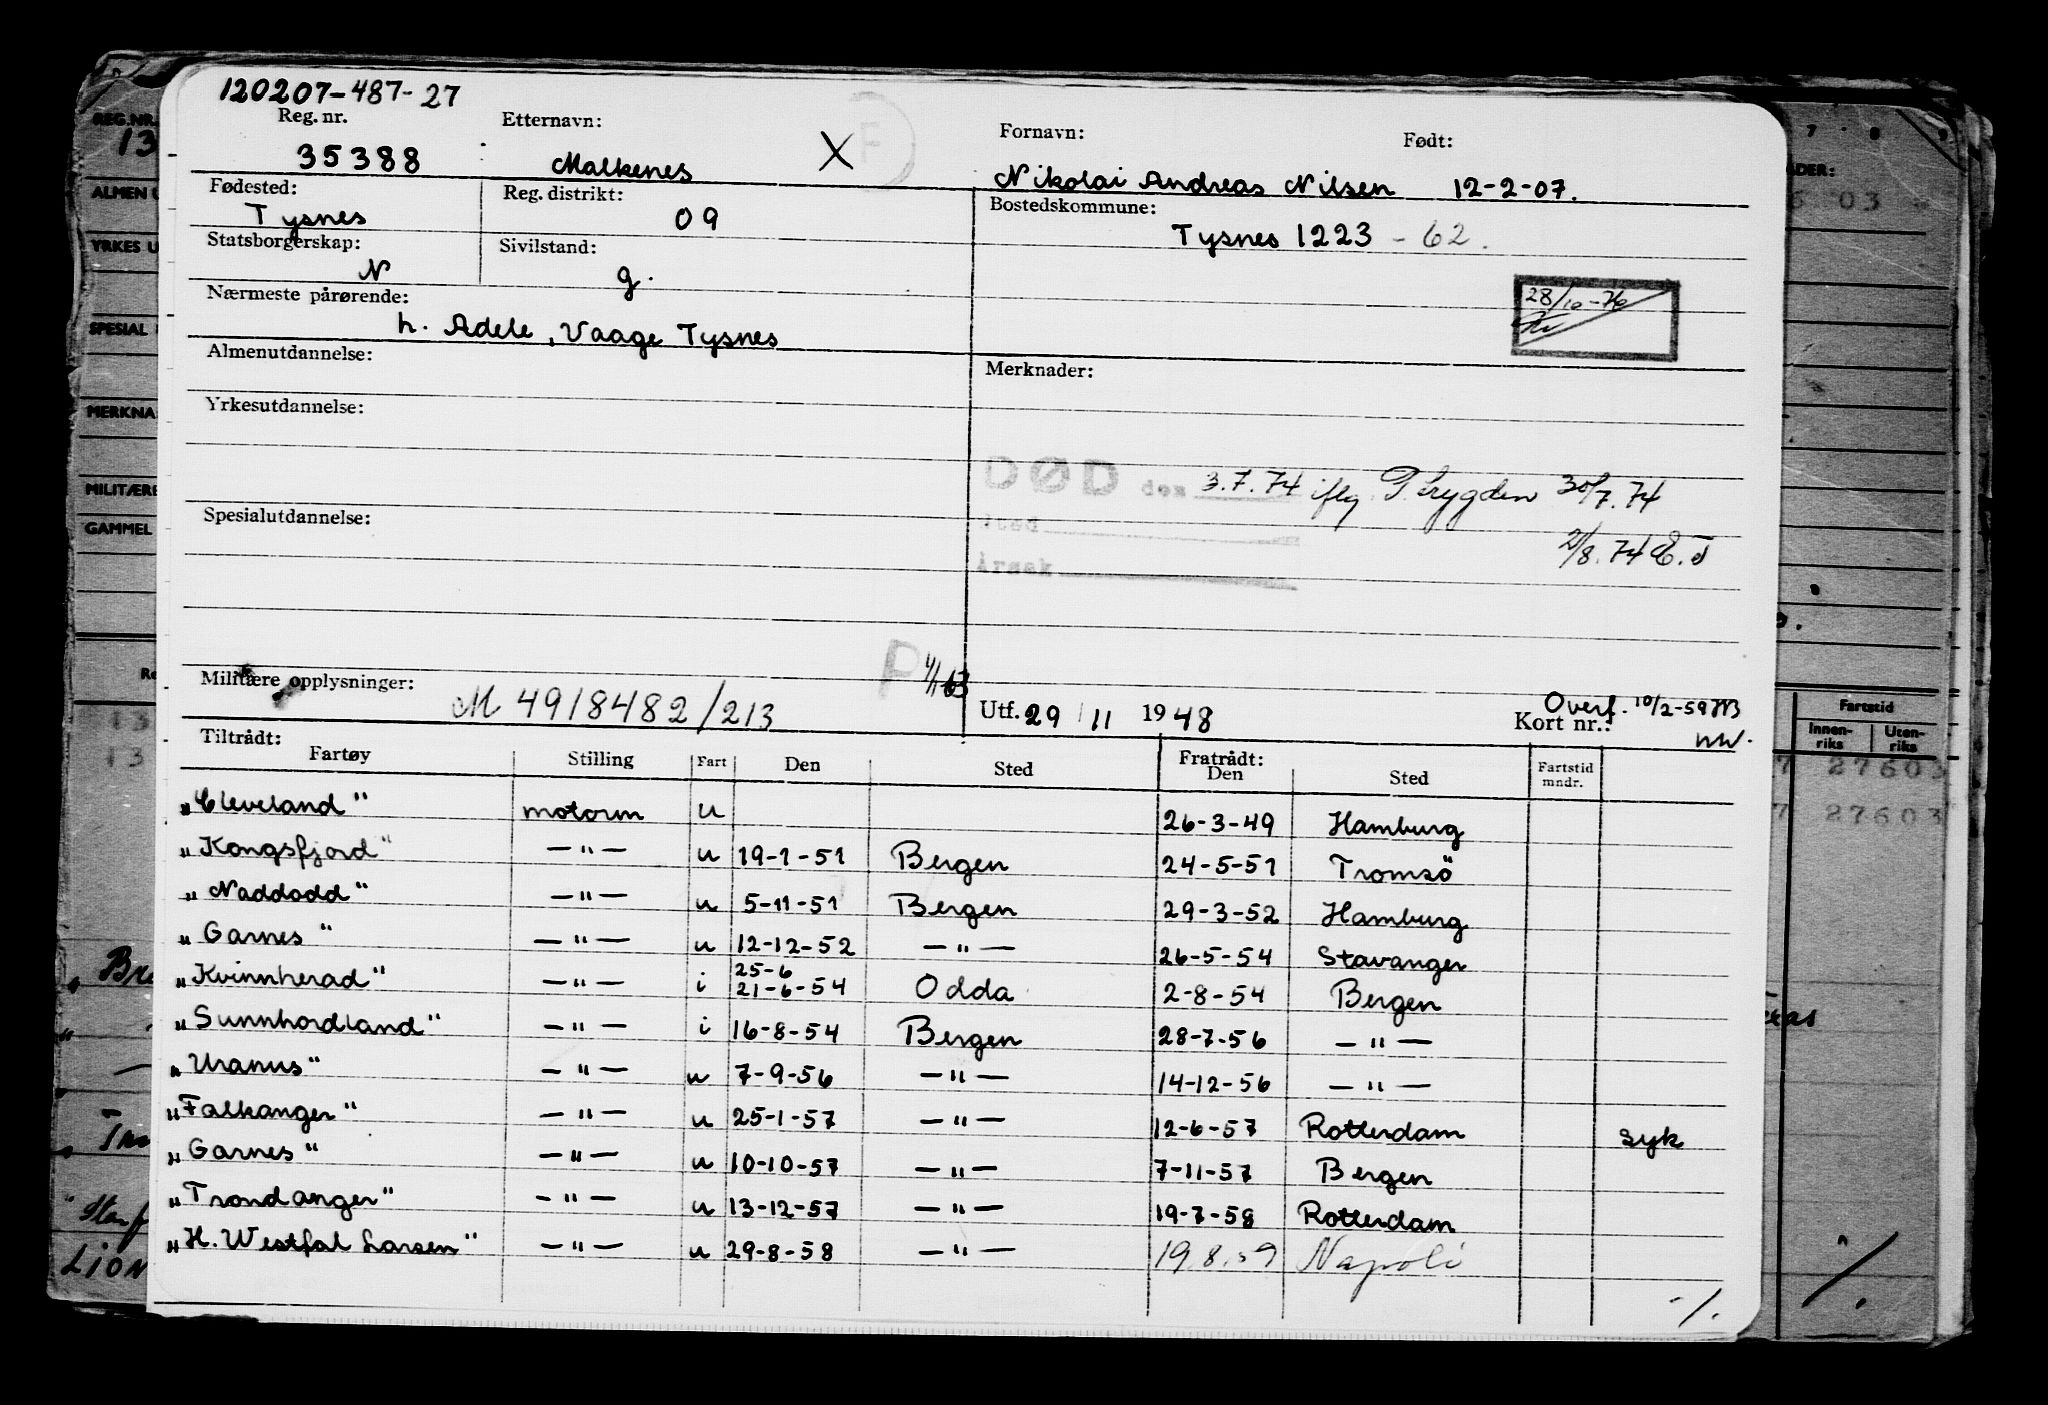 120207-487-27
Reg. nr. Etternavn: Fornavn: Født:
35388 Malkenes X F Nikolai Andreas Nilsen 12-2-07.
Fødested: Reg. distrikt: Bostedskommune:
Tysnes 09 Tysnes 1223 - 62.
Statsborgerskap: Sivilstand:
N g.
28/10-76
Nærmeste pårørende:
h. Adele, Vaage Tysnes
Almenutdannelse: Merknader:
Yrkesutdannelse:
DØD den 3.7.74 iflg. P.trygden 30/7.74
Spesialutdannelse: Sted
2/8.74 E.T
Årsak
P
Militære opplysninger: M 4918482/213 Utf. 29/11 1948 Kort nr.: Overf. 10/2-59
Tiltrådt: Fratrådt:
Fartøy Stilling Fart Den Sted Den Sted Fartstid mndr.
"Cleveland" motorm u 26-3-49 Hamburg
"Kongsfjord" —"— u 19-1-51 Bergen 24-5-51 Tromsö
"Naddodd" —"— u 5-11-51 Bergen 29-3-52 Hamburg
"Garnes" —"— u 12-12-52 —"— 26-5-54 Stavanger
25-6
"Kvinnherad" —"— i 21-6-54 Odda 2-8-54 Bergen
"Sunnhordland" —"— i 16-8-54 Bergen 28-7-56 —"—
"Uranus" —"— u 7-9-56 —"— 14-12-56 —"—
"Falkanger" —"— u 25-1-57 —"— 12-6-57 Rotterdam syk
"Garnes" —"— u 10-10-57 —"— 7-11-57 Bergen
"Trondanger" —"— u 13-12-57 —"— 19-7-58 Rotterdam
"H. Westfal Larsen" —"— u 29-8-58 —"— 19.8.59 Napoli
·/.
REG.NR.
13
ALMEN U
YRKES U
SPESIAL
MERKNA
MILITÆRE
GAMMEL
7 8 9
ADER:
03
Fartstid
Innen-riks Uten-riks
27603
27603
LION
/.